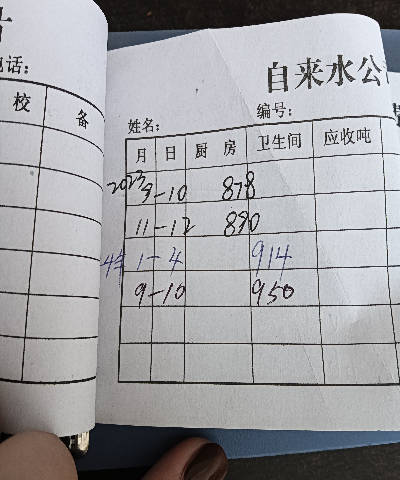 电话:
校 备
自来水公
姓名: 编号:
月 日 厨 房 卫生间 应收吨
2023 9-10 878
11-12 890
1-4 914
9-10 950